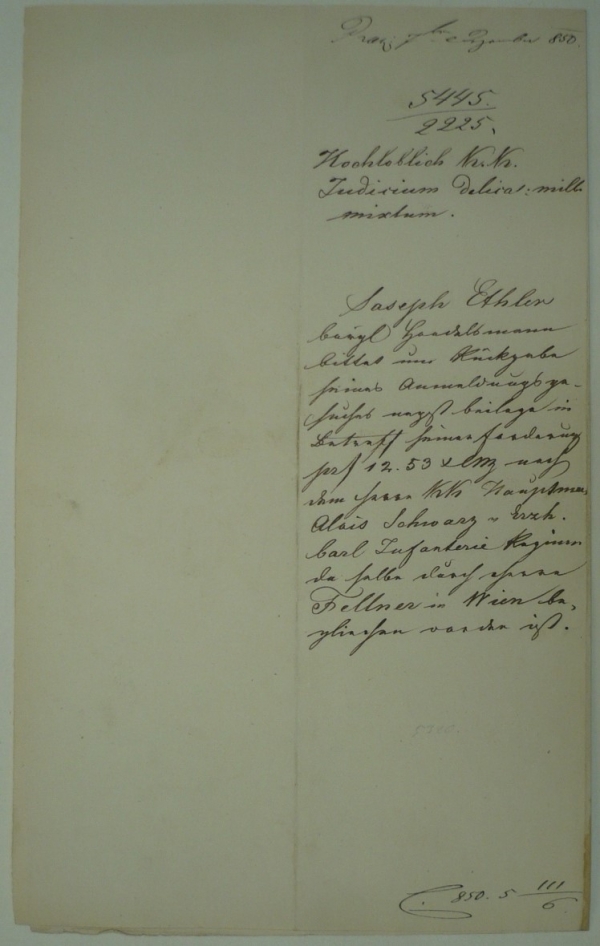 Prag 7ber Dezember 850.
5445.
2225.
Hochloblich K.K.
Judicium Delica: mill.
mixtum.
Joseph Ethler
bürgl Handelsmann
bittet um Rückgabe
seines Anmeldungsge-
suches nebst beilage in
Betreff seiner forderung
prf 12.53 x CMz nach
dem Herrn KK Hauptman
Alois Schwarz v Erzh.
Carl Infanterie Regimen
da selbe durch Herrn
Fellner in Wien be-
glichen worden ist.
C. 850. 5 III/6